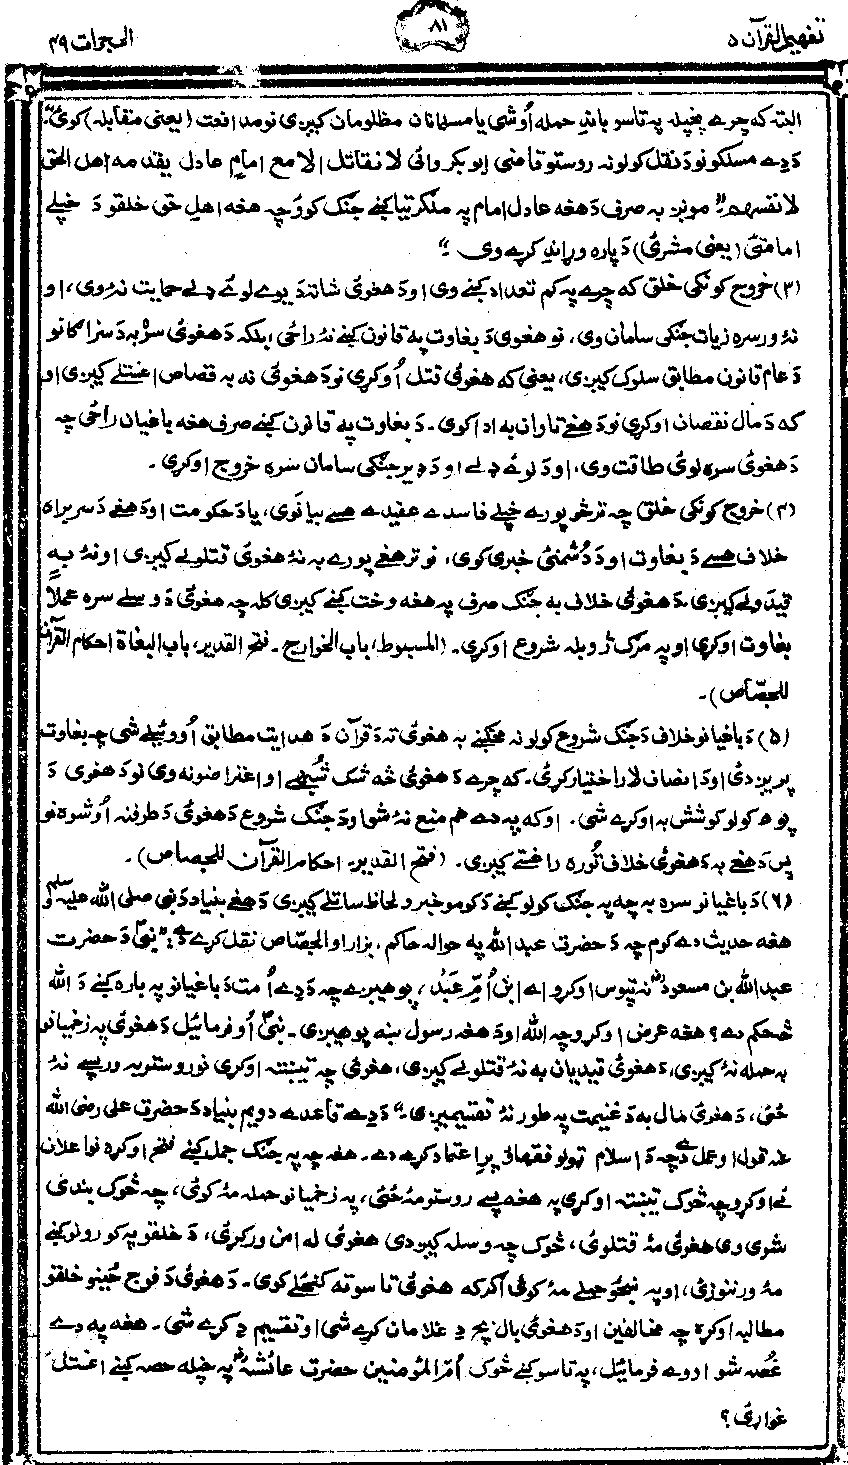 تفهیم القرآن ۵
۸۱
الحجرات ۴۹
البته که چرے پخپله په تاسو باندِ حمله اُوشی یا مسلمانان مظلومان کیږی نو مدافعت (یعنی مقابله) کوئ"۔
دَ دے مسلکونو دَ نقل کولو نه روستو قاضی ابوبکر وائی لا نقاتل الا مع امامِ عادل یقدمه اهل الحق
لا نفسهم" مونږ به صرف دَ هغه عادل امام په ملګرتیا کښے جنګ کوو چه هغه اهلِ حق خلقو دَ خپلے
امامتیٔ (یعنی مشریٔ) دَ پاره وړاندِ کړے وی ۔"
(۳) خروج کونکی خلق که چرے په کم تعداد کښے وی او دَ هغوئ شاته دَ یوے لوئے ډلے حمایت نهٔ وی، او
نهٔ ورسره زیات جنګی سامان وی، نو هغوی دَ بغاوت په قانون کښے نهٔ راځی بلکه دَ هغوئ سره به دَ سزاګانو
دَ عام قانون مطابق سلوک کیږی، یعنی که هغوئ قتل اُوکړی نو دَ هغوئ نه به قصاص اغستلے کیږی او
که دَ مال نقصان اوکړی نو دَ هغے تاوان به ادا کوی ۔ دَ بغاوت په قانون کښے صرف هغه باغیان راځی چه
دَ هغوئ سره لوئ طاقت وی، او دَ لوئے ډلے او دَ ډیر جنګی سامان سره خروج اوکړی ۔
(۴) خروج کونکی خلق چه تر څو پورے خپلے فاسدے عقیدے هسے بیانوی، یا دَ حکومت او دَ هغے دَ سربراه
خلاف هسے دَ بغاوت او دَ دُشمنئ خبرے کوی، نو تر هغے پورے به نهٔ هغوئ قتلولے کیږی او نهٔ به
قیدولے کیږی، دَ هغوئ خلاف به جنګ صرف په هغه وخت کښے کیږی کله چه هغوئ دَ وسلے سره عملاً
بغاوت اوکړی او په مرګ ژوبله شروع اوکړی ۔ (المبسوط، باب الخوارج ۔ فتح القدیر، باب البغاة احکام القرآن
للجصّاص) ۔
(۵) دَ باغیانو خلاف دَ جنګ شروع کولو نه مخکښے به هغوئ ته دَ قرآن دَ هدایت مطابق اُووئیلے شی چه بغاوت
پریږدئ او دَ انصاف لار اختیار کړئ۔ که چرے دَ هغوئ څه شک شُبهے او اعتراضونه وی نو دَ هغوی دَ
پوهه کولو کوشش به اوکړے شی ۔ او که په دے هم منع نهٔ شو او دَ جنګ شروع دَ هغوئ دَ طرفنه اُوشوه نو
پس دَ هغے به دَ هغوئ خلاف تُوره راخستے کیږی۔ (فتح القدیر، احکام القرآن للجصاص) ۔
(۶) دَ باغیانو سره به چه په جنګ کولو کښے دَ کومو خبرو لحاظ ساتلے کیږی دَ هغے بنیاد دَ نبی صلی الله علیه وسلم
هغه حدیث دے کوم چه دَ حضرت عبدالله په حواله حاکم، بزار او الجصّاص نقل کړے دے "نبیؐ دَ حضرت
عبدالله بن مسعودؓ نه تپوس اوکړو اے ابنِ اُمِّ عَبد، پوهیږے چه دَ دے اُمت دَ باغیانو په باره کښے دَ الله
څه حکم دے؟ هغه عرض اوکړو چه الله او دَ هغه رسول ښه پوهیږی۔ نبیؐ اُوفرمائیل دَ هغوئ په زخمیانو
به حمله نهٔ کیږی، دَ هغوئ قیدیان به نهٔ قتلولے کیږی، هغوئ چه تیښته اوکړی نو روستو به ورپسے نهٔ
ځی، دَ هغوئ مال به دَ غنیمت په طور نهٔ تقسیمیږی۔" دَ دے قاعدے دویم بنیاد دَ حضرت علی رضی الله
عنه قول او عمل دے چه دَ اسلام ټولو فقهاؤ پرِ اعتماد کړے دے ۔ هغه چه په جنګِ جمل کښے فتح اوکړه نو اعلان
ئے اوکړو چه څوک تیښته اوکړی په هغه پسے روستو مهٔ ځئ، په زخمیانو حمله مهٔ کوئ، چه څوک بندی
شوی وی هغوئ مهٔ قتلوئ، څوک چه وسله کیږدی هغوئ له امن ورکړئ، دَ خلقو په کورونو کښے
مهٔ ورننوزئ، او په ښځو حملے مهٔ کوئ اګر که هغوئ تاسو ته کنځلے کوی۔ دَ هغوئ دَ فوج ځینو خلقو
مطالبه اوکړه چه مخالفین او دَ هغوئ بال بچ دِ غلامان کړے شی او تقسیم دِ کړے شی ۔ هغه په دے
غُصه شو او وے فرمائیل، په تاسو کښے څوک اُمّ المؤمنین حضرت عائشهؓ په خپله حصه کښے اغستل
غواړی؟